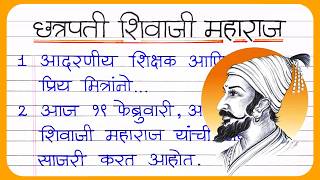 छत्रपती शिवाजी महाराज
1 आदरणीय शिक्षक
प्रिय मित्रांनो...
2 आज १९ फेब्रुवारी,
शिवाजी महाराज यांची
साजरी करत आहोत.